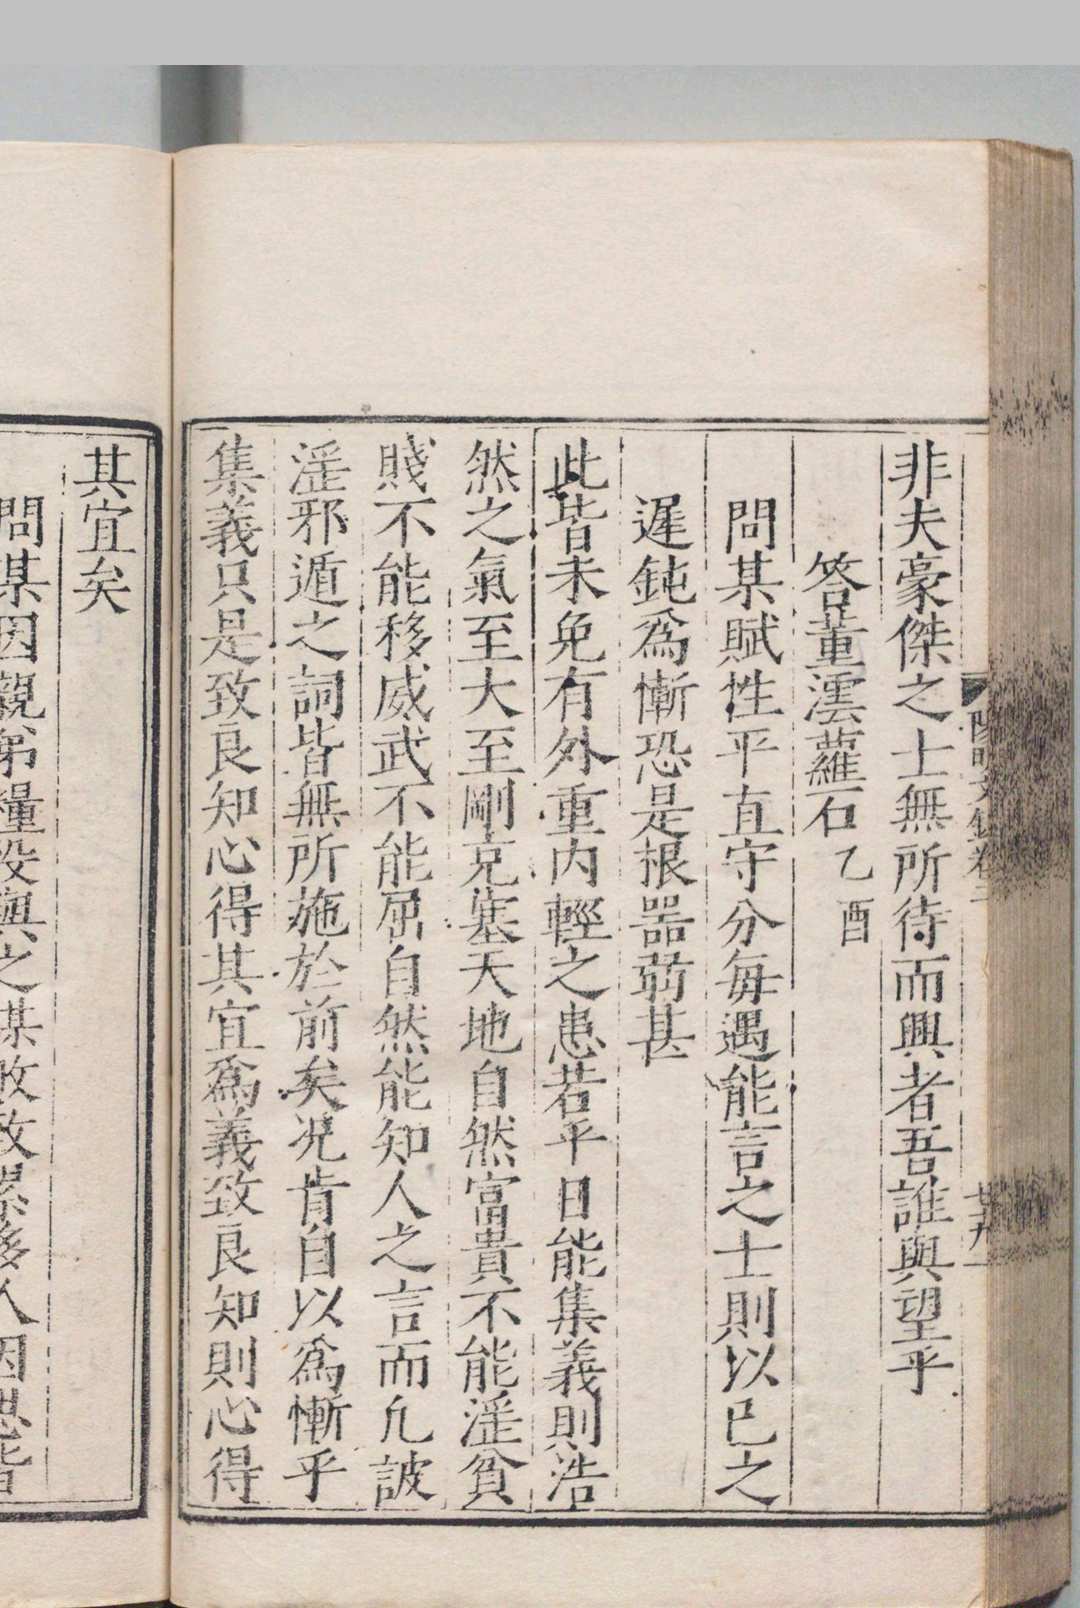 非夫豪傑之士無所待而興者吾誰與望乎
答董澐蘿石 乙酉
問某賦性平直守分每遇能言之士則以已之
遲鈍爲慚恐是根器弱甚
此皆未免有外重内輕之患若平日能集義則浩
然之氣至大至剛充塞天地自然富貴不能淫貧
賤不能移威武不能屈自然能知人之言而凡詖
淫邪遁之詞皆無所施於前矣况肯自以爲慚乎
集義只是致良知心得其宜爲義致良知則心得
其宜矣
問某因親弟糧役與之謀敗致累多人因思皆
陽明文錄卷二
廿九